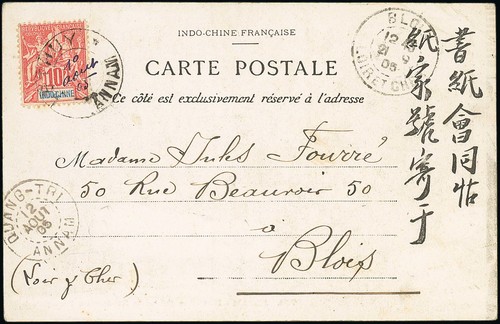 INDO-CHINE FRANÇAISE
CARTE POSTALE
Ce côté est exclusivement réservé à l'adresse
10
INDO-CHINE
10
Août
ANNAM
BLOIS
21
9
05
LOIR ET CHER
書紙會同帖
紙家號寄于
Madame Jules Fourré
50 Rue Beauvoir 50
à
Blois
(Loir & Cher)
QUANG-TRI
12
AOUT
05
ANNAM